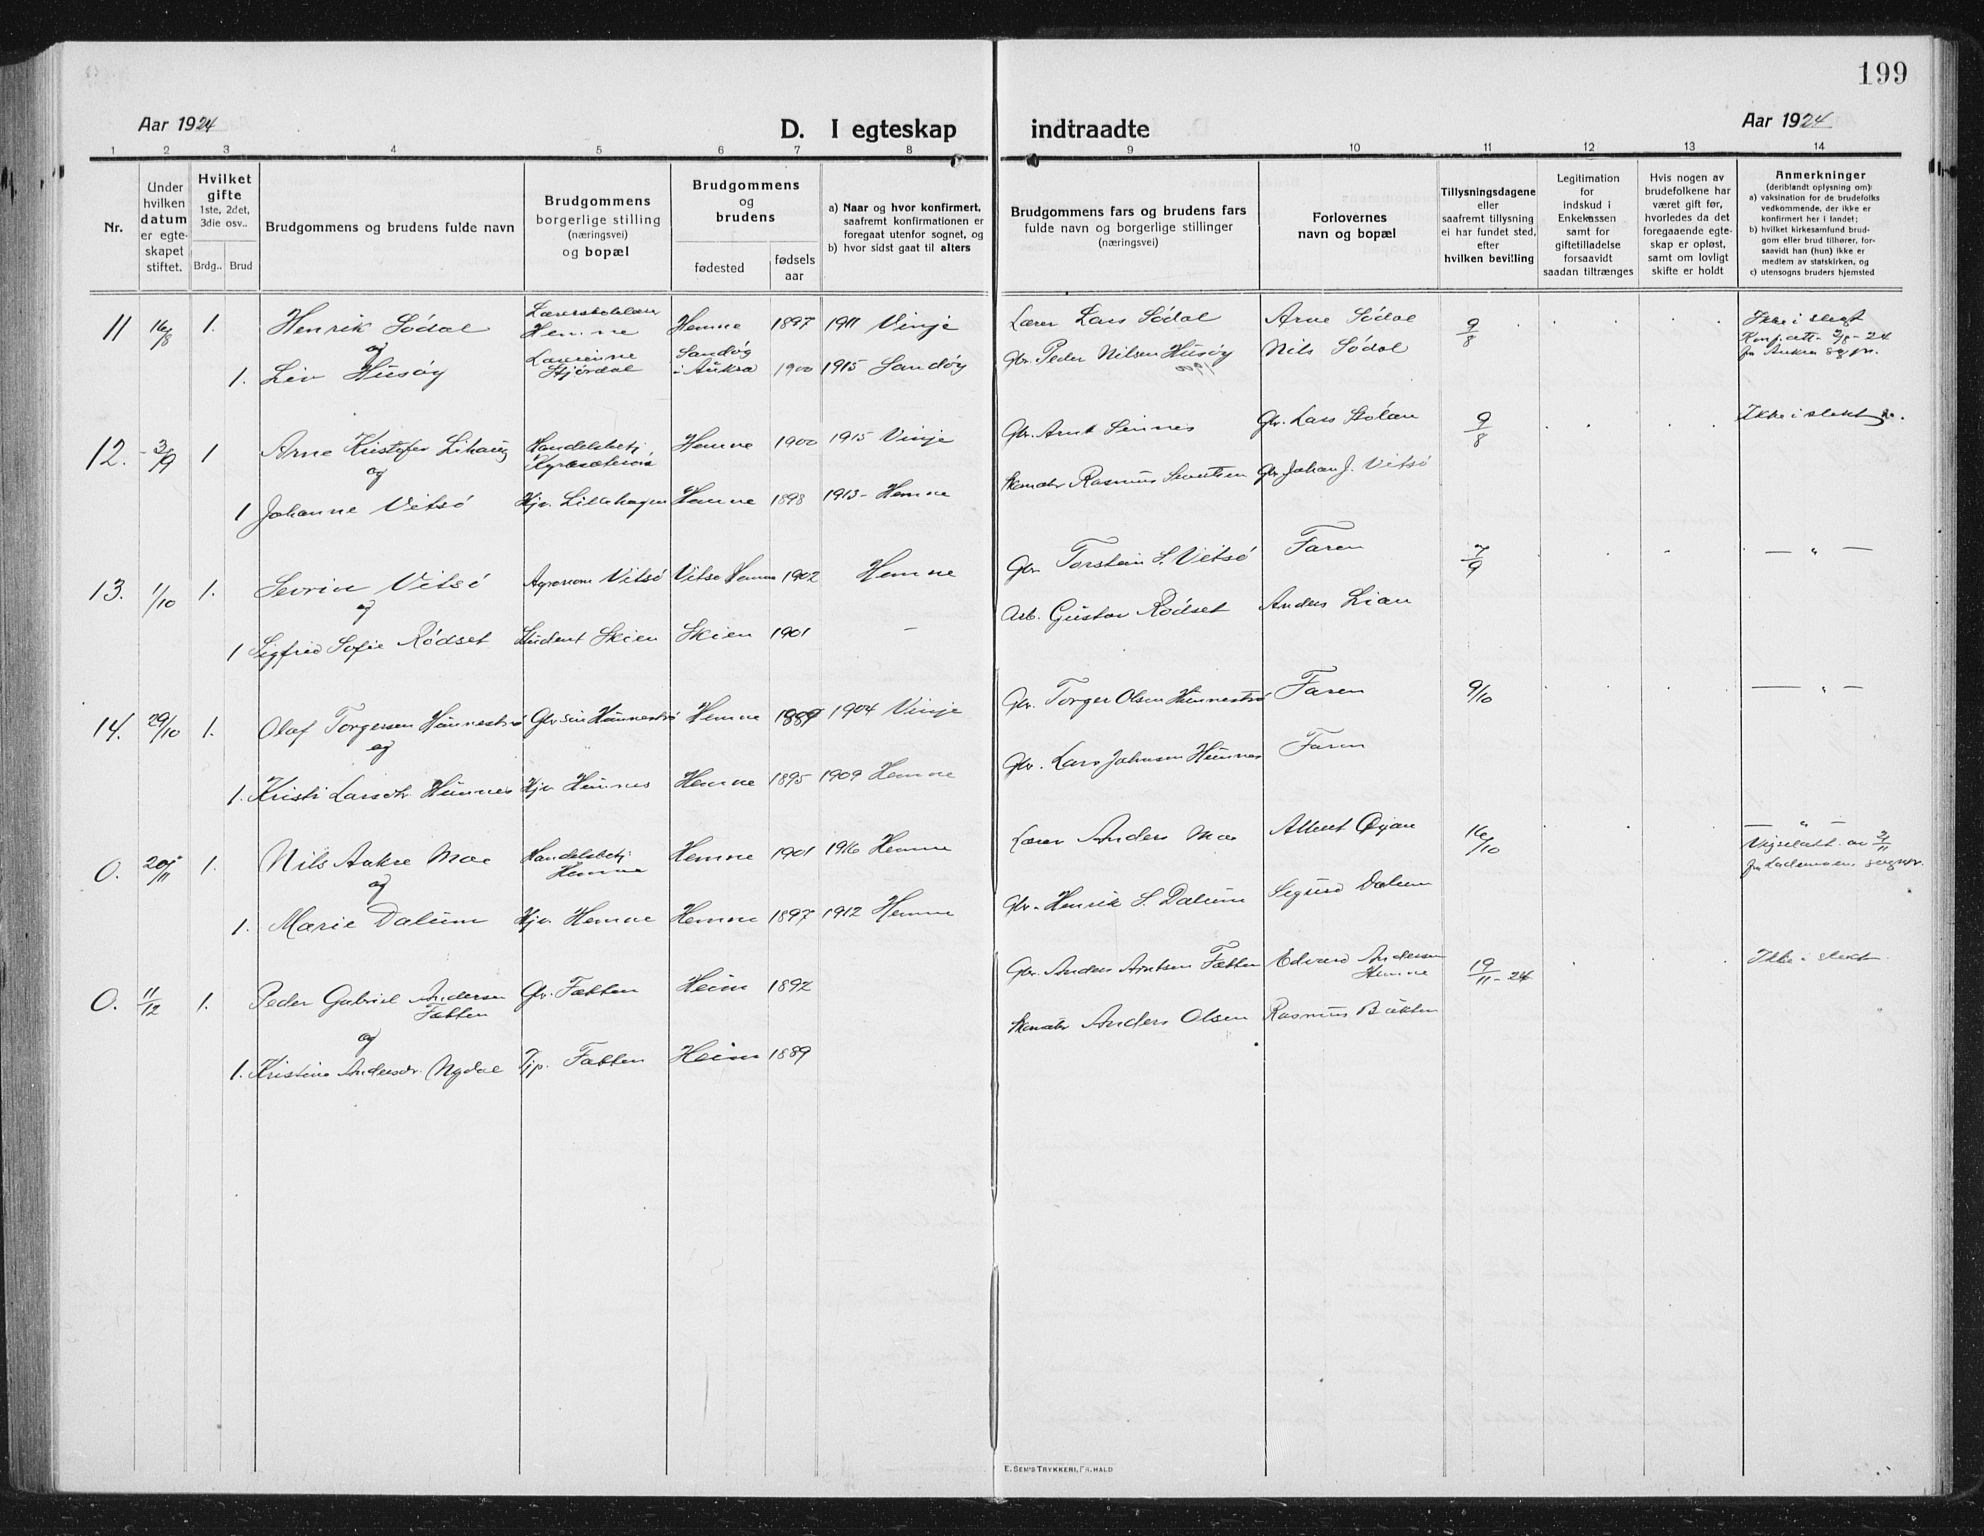 199
Aar 1924
D. I egteskap
indtraadte
Aar 1924
1 2 3 4 5 6 7 8 9 10 11 12 13 14
Nr.
Under
hvilken
datum
er egte-
skapet
stiftet.
Hvilket
gifte
1ste, 2det,
3die osv..
Brdg.. Brud
Brudgommens og brudens fulde navn
Brudgommens
borgerlige stilling
(næringsvei)
og bopæl
Brudgommens
og
brudens
fødested
fødsels
aar
a) Naar og hvor konfirmert,
saafremt konfirmationen er
foregaat utenfor sognet, og
b) hvor sidst gaat til alters
Brudgommens fars og brudens fars
fulde navn og borgerlige stillinger
(næringsvei)
Forlovernes
navn og bopæl
Tillysningsdagene
eller
saafremt tillysning
ei har fundet sted,
efter
hvilken bevilling
Legitimation
for
indskud i
Enkekassen
samt for
giftetilladelse
forsaavidt
saadan tiltrænges
Hvis nogen av
brudefolkene har
været gift før,
hvorledes da det
foregaaende egte-
skap er opløst,
samt om lovligt
skifte er holdt
Anmerkninger
(deriblandt oplysning om):
a) vaksination for de brudefolks
vedkommende, der ikke er
konfirmert her i landet;
b) hvilket kirkesamfund brud-
gom eller brud tilhører, for-
saavidt han (hun) ikke er
medlem av statskirken, og
c) utensogns bruders hjemsted
11 16/8 1. Henrik Södal Hemne Hemne 1897 1911 Vinje Lærer Lars Södal Arne Södal 9/8 Ikke i slegt
og
1. Liv Husöy Stjördal Sandöy i Aukra 1900 1915 Sandöy Gbr. Peder Nilsen Husöy Nils Södal
12. 3/9 1 Arne Kristofer Lihaug Handelsbetj. Hemne 1900 1915 Vinje Gbr. Arnt Sinnes Gbr. Lars Stölan 9/8 Ikke i slekt
og
1 Johanne Vitsö Hjv. Lillehagen Hemne 1898 1913 - Hemne Rasmus Sivertsen Gbr Johan J. Vitsö
13. 1/10 1. Sevrin Vitsö Agronom Vitsö Vitsö Hemne 1902 Hemne Gbr Torstein S. Vitsö Faren 7/9 — „ —
og
1 Sigfrid Sofie Rödset Student Skien Skien 1901 - Arb. Gustav Rödset Anders Lian
14. 29/10 1. Olaf Torgersen Hünneströ Gbr. sön Hünneströ Hemne 1889 1904 Vinje Gbr. Torger Olsen Hünneströ Faren 9/10 — „ —
og
1. Kristi Larsdtr. Hünnes Hjv Hünnes Hemne 1895 1909 Hemne Gbr. Lars Johnsen Hünnes Faren
0. 20/11 1. Nils Aukre Moe Handelsbetj. Hemne Hemne 1901 1916 Hemne Lærer Anders Moe Albert Öyan 16/10 — „ —
Vigselatt. av 21/11
og
1. Marie Dalum Hjv. Hemne Hemne 1897 1912 Hemne Gbr. Henrik S. Dalum Sigurd Dalum
0. 11/12 1. Peder Gabriel Andersen Fætten Gbr. Fætten Heim 1892 Gbr. Anders Arntsen Fætten Edvard Andersen Hemne 19/11-24 Ikke i slekt
og
1. Kristine Andersdr. Nydal Tjp. Fætten Heim 1889 Anders Olsen Rasmus Bakken
E. SEM'S TRYKKERI, FR.HALD